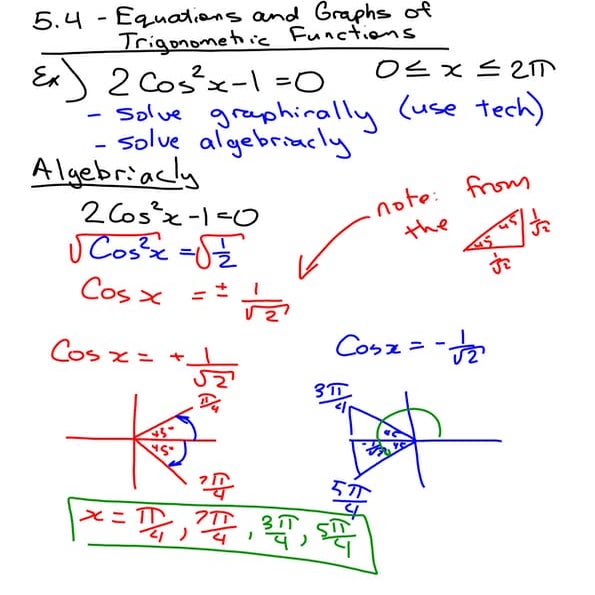 5.4 - Equations and Graphs of
Trigonometric Functions
Ex) 2Cos²x-1=0 0≤ x ≤ 2π
- solve graphically (use tech)
- solve algebriacly
Algebriacly
2Cos²x-1=0
√Cos²x = √1/2
Cos x = ± 1/√2
note: from
the
45 45 1/√2
1/√2
Cos x = + 1/√2
Cosx = - 1/√2
π/4
45°
45°
7π/4
3π/4
45
-1/√2 45
5π/4
x = π/4, 7π/4, 3π/4, 5π/4